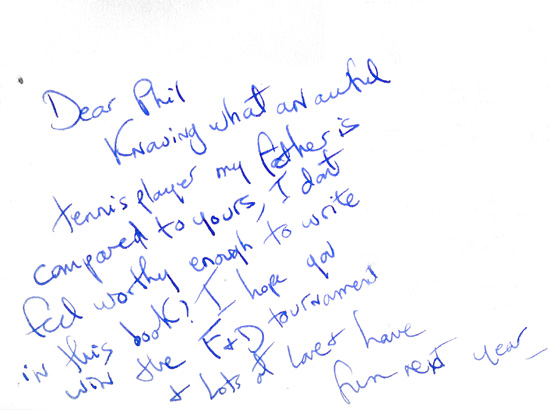 Dear Phil
Knowing what an awful
tennis player my father is
compared to yours, I dont
feel worthy enough to write
in this book! I hope you
win the F+D tournament
+ Lots of Love + have
fun next year